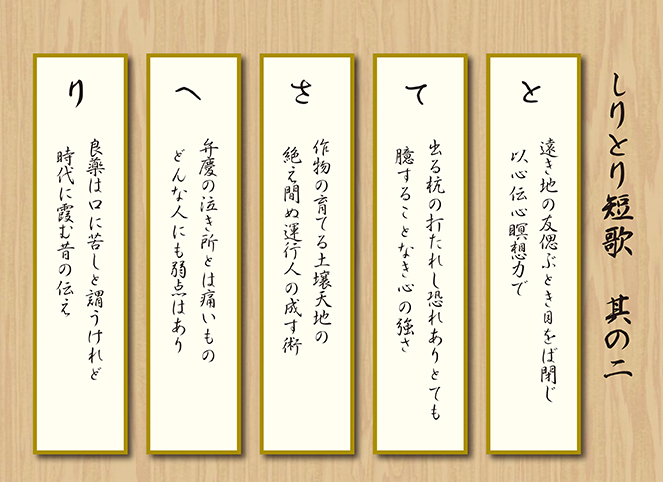 しりとり短歌　其の二
と
遠き地の友偲ぶとき目をば閉じ
以心伝心瞑想力で
て
出る杭の打たれし恐れありとても
臆することなき心の強さ
さ
作物の育てる土壌天地の
絶え間ぬ運行人の成す術
へ
弁慶の泣き所とは痛いもの
どんな人にも弱点はあり
り
良薬は口に苦しと謂うけれど
時代に霞む昔の伝え